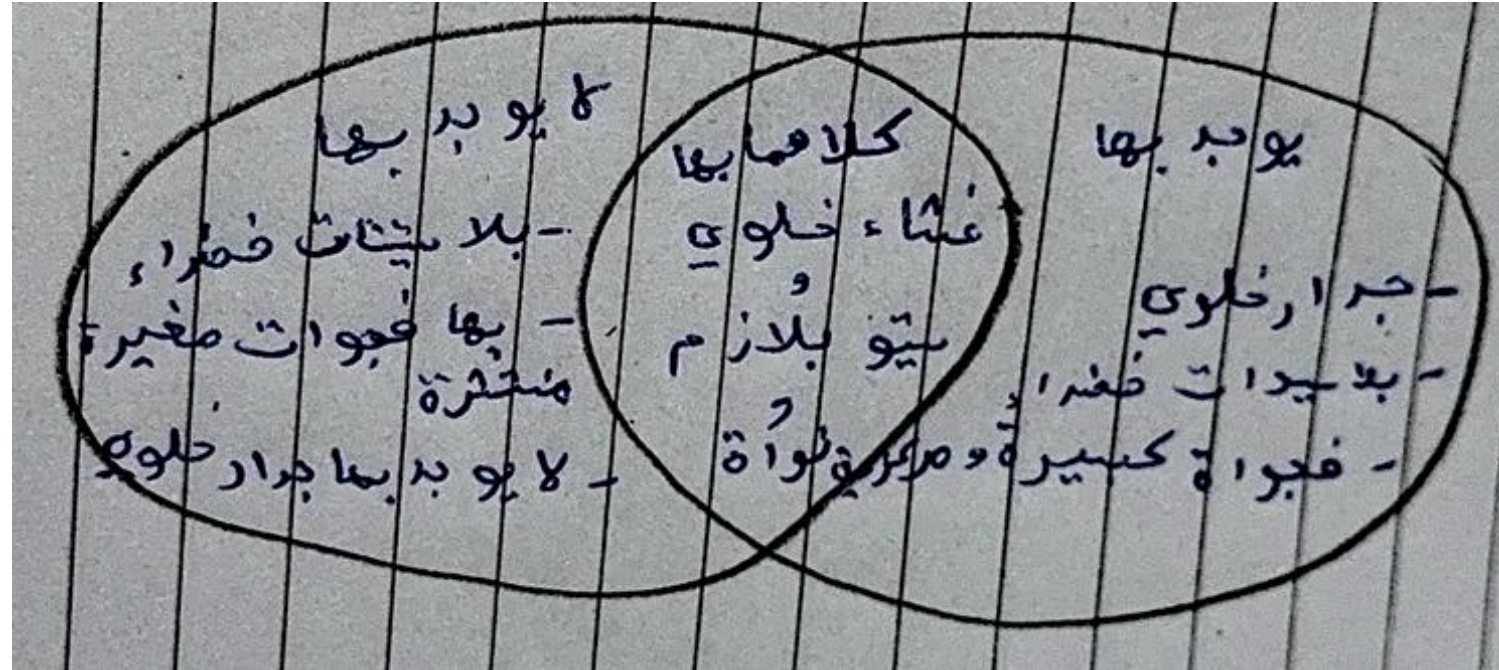 يوجد بها
- جدار خلوي
- بلاسيدات خضراء
- فجواة كبيرة و مركزية
كلاهما بها
غشاء خلوي
و
سيتو بلازم
و
نواة
لا يوجد بها
- بلا خضراء
- بها فجوات صغيرة
منتشرة
- لا يوجد بها جدار خلوي